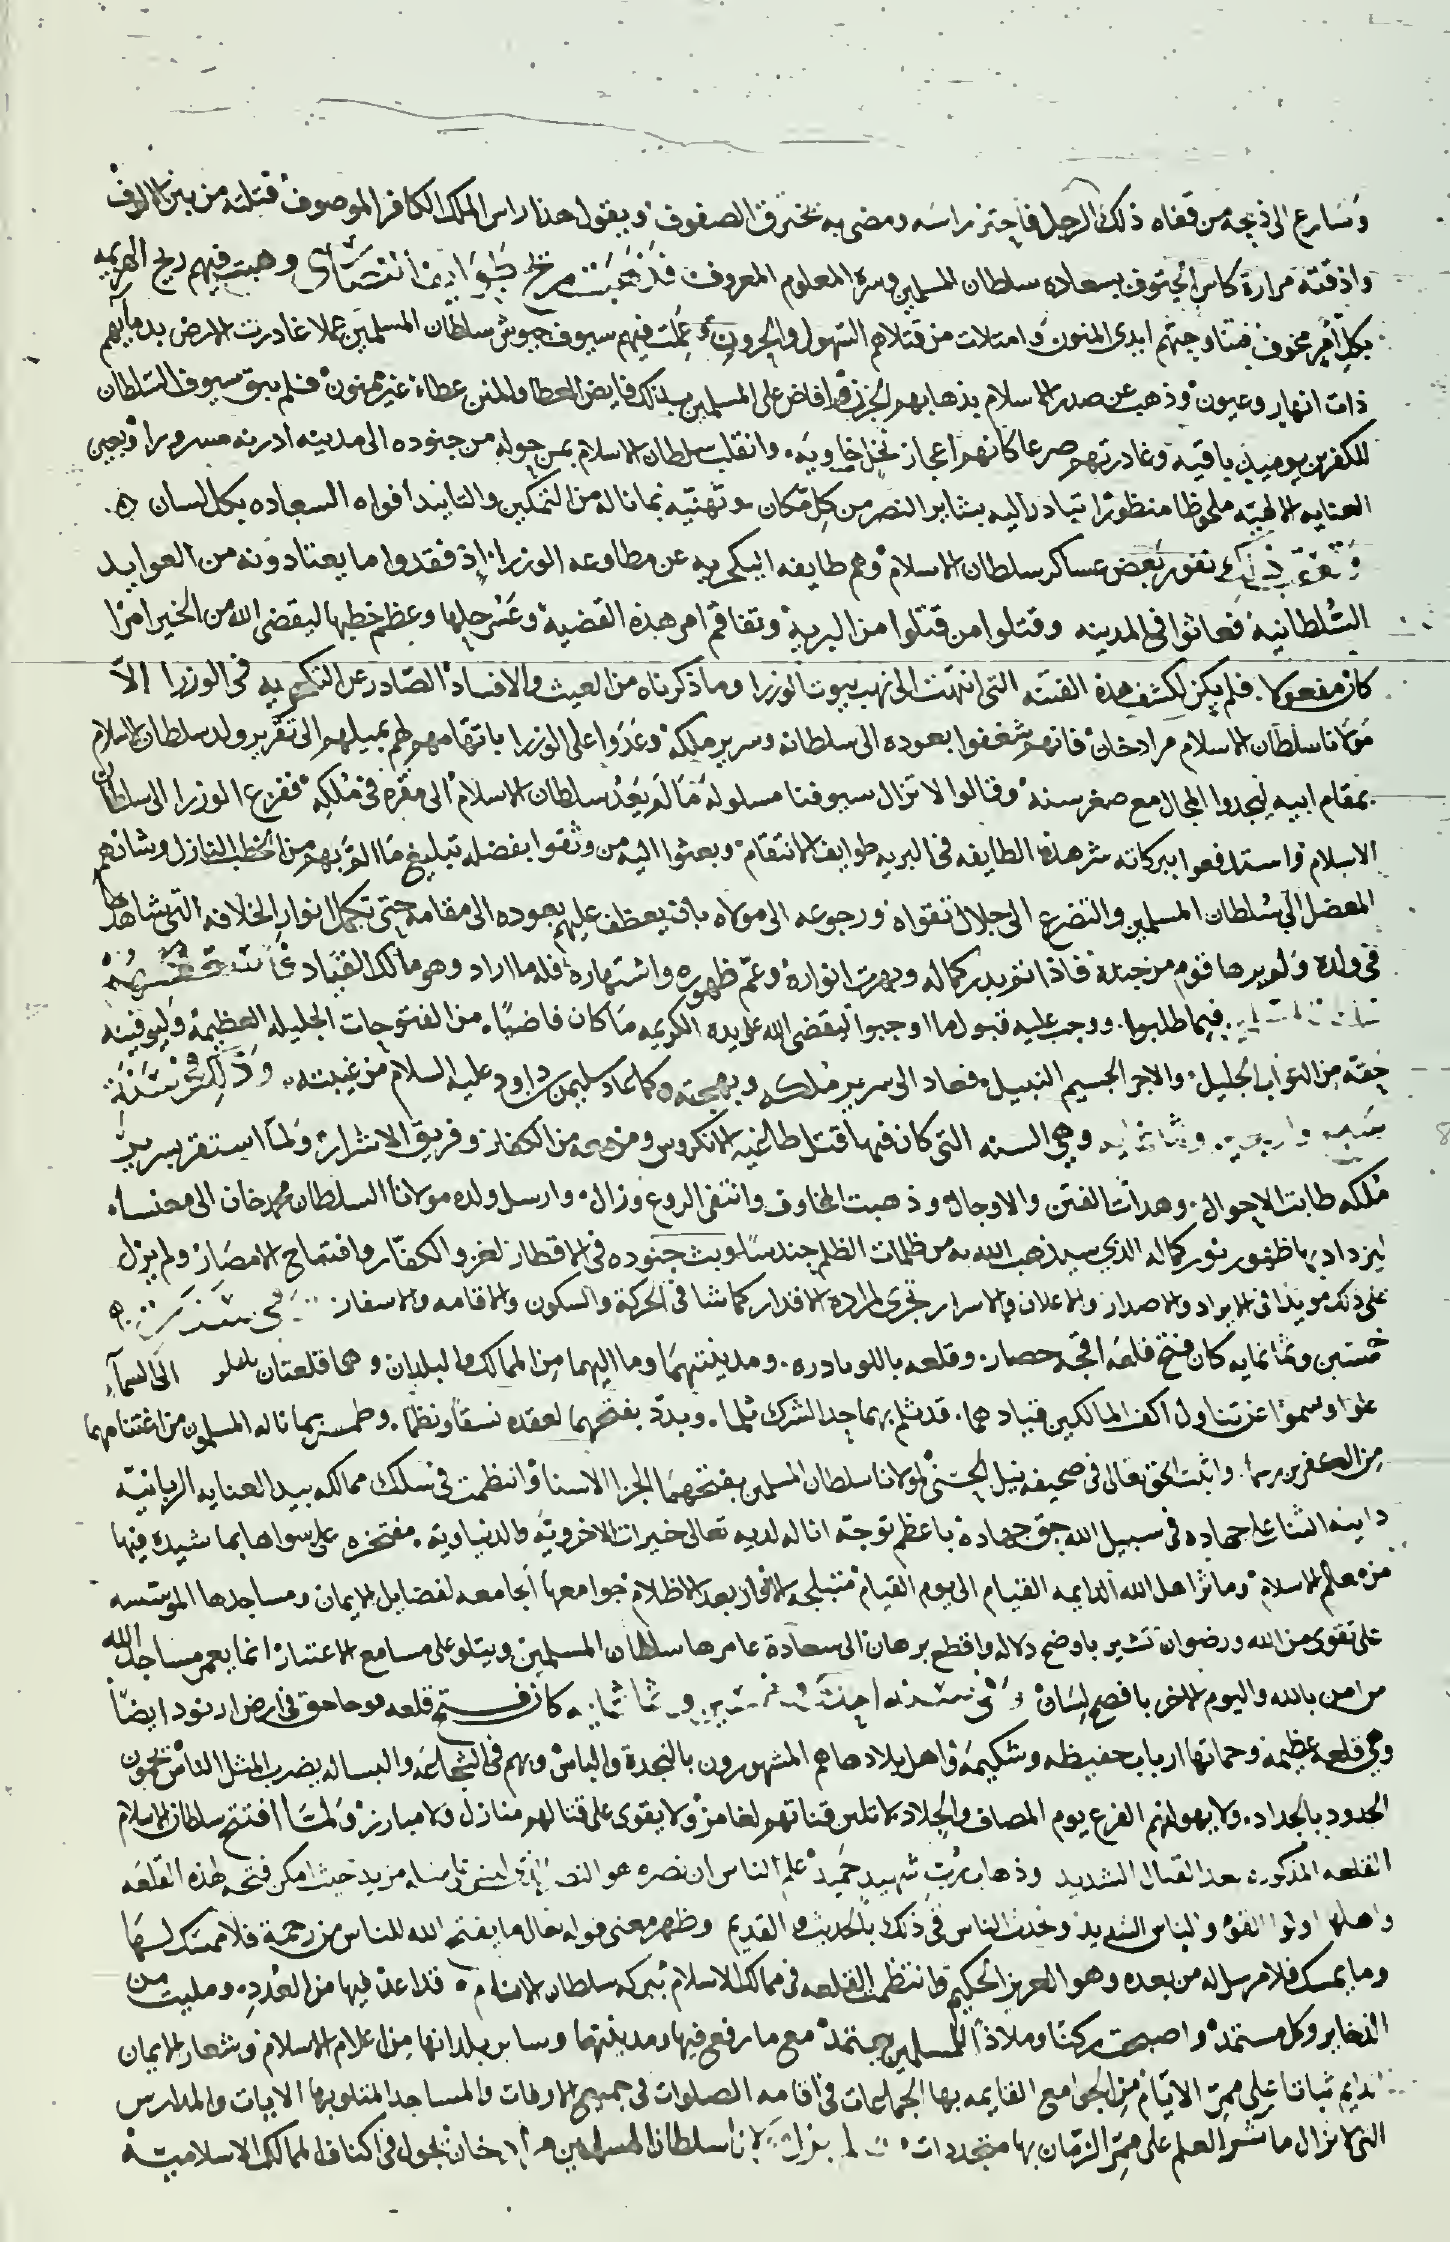 وسارع الى ذبحه من قفاه ذلك الرجل فاجتز راسه ومضى به يخترق الصفوف ويقول هذا راس الملك الكافر الموصوف قتلته من بين الالوف
واذقته مرارة كاس الحتوف بسعاده سلطان المسلمين وسره المعلوم المعروف وهبت فيهم ريح الهزيمه
بكل امر مخوف فتناوحتهم ايدى المنون وامتلات من قتلاهم السهول والحزون وعملت فيهم سيوف جيوش سلطان المسلمين عملا غادرت الارض بدمايهم
ذات انهار وعيون وذهب عن صدر الاسلام بذهابهم الحزن وافاض على المسلمين بذلك فايض العطا والمنن عطاء غير ممنون فلم يبق سيوف السلطان
للكفرين يوميذ باقيه وغادرتهم صرعا كانهم اعجاز نخل خاويه وانقلب سلطان الاسلام بمن حوله من جنوده الى مدينه ادرنه مسرورا وبعين
العنايه الالهيه ملحوظا منظورا تتبادر اليه بشاير النصر من كل مكان وتهنيه بما ناله من التمكين والتاييد افواه السعاده بكل لسان
نفور بعض عساكر سلطان الاسلام وهم طايفه اليكجريه عن مطاوعه الوزرا اذ فقدوا ما يعتادونه من العوايد
السلطانية فعاثوا فى المدينه وقتلوا من قتلوا من البرية وتفاقم امر هذه القضيه وعسر حلها وعظم خطبها ليقضى الله من الخير امرا
كان مفعولا فلم يكن لكشف هذه الفتنه التى انتهت الى نهب بيوت الوزرا وما ذكرناه من العيث والافساد الصادر عن اليكجريه فى الوزرا الا
مولانا سلطان الاسلام مراد خان فانهم شغفوا بعوده الى سلطانه وسرير ملكه وعدوا على الوزرا باتهامهم لهم بميلهم الى تقرير ولد سلطان الاسلام
بمقام ابيه ليجدوا المجال مع صغر سنه وقالوا لا تزال سيوفنا مسلوله ما لم يعد سلطان الاسلام الى مقره فى ملكه ففزع الوزرا الى سلطان
الاسلام واستدفعوا ببركاته شر هذه الطايفه فى البريه طوايف الانتقام وبعثوا اليه من وثقوا بفضله تبليغ ما الم بهم من الخطب النازل وشانهم
المعضل الى سلطان المسلمين والتضرع الى جلال تقواه ورجوعه الى مولاه بان يعطف عليهم بعوده الى مقامه حتى تكمل انوار الخلافه التى شاهدها
فى ولده ولم يرها قوم من جنده فاذا نور بدر كماله وبهرت انواره وعم ظهوره واشتهاره فله ما اراد وهو مالك القياد
فيما طلبوا ووجب عليه قبول ما اوجبوا ليقضى الله على يده الكريمه ما كان قاضيا من الفتوحات الجليله العظيمة وليوفينه
حقه من الثواب الجليل والاجر الجسيم النبيل فعاد الى سرير ملكه وبهجته كما عاد سليمن بن داود عليه السلام من غيبته وذلك فى سنة
واربعين وثمانمايه وهي السنه التى كان فيها قتل طاغيه الانكروس ومن معه من الكفار وفريق الاشرار ولما استقر بسرير
ملكه طابت الاحوال وهدات الفتن والاوجال وذهبت المخاوف وانتفى الروع وزال وارسل ولده مولانا السلطان محمد خان الى مغنيسا
ليزداد بها ظهور نور كماله الذي سيذهب الله به من ظلمات الظلم وبث جنوده فى الاقطار لغزو الكفار وافتتاح الامصار ولم يزل
على ذلك مويدا فى الايراد والاصدار والاعلان والاسرار تجرى لمراده الاقدار كما شا فى الحركة والسكون والاقامه والاسفار
خمسين وثمانمايه كان فتح قلعه اقجه حصار وقلعه باللوبادره ومدينتهما وما اليهما من الممالك والبلدان وهما قلعتان الى السماء
علوا وسموا عن تناول اكف المالكين قيادهما قد ثلم بهما جد الشرك ثلما وبدد بفتحهما لعقده نسقا ونظما وطمس بما ناله المسلمون من اغتنامهما
من الكفرين رسما واثبت الحق تعالى فى صحيفه نيل الحسنى لمولانا سلطان المسلمين بفتحهما الجزا الاسنا وانتظمت فى سلك ممالكه بيد العنايه الربانيه
داينه الثنا على جهاده فى سبيل الله حق جهاده باعظم توجه اناله لديه تعالى خيرات الاخرويه والدنياويه مفتخره على سواها بما شيده فيها
من معالم الاسلام وماثر اهل الله الدايمه القيام الى يوم القيام متبلجه الانوار بعد الاظلام جوامعها الجامعه لفضايل الايمان ومساجدها الموسسه
على تقوى من الله ورضوان تشير باوضح دلاله واقطع برهان الى سعادة عامرها سلطان المسلمين ويتلو على مسامع الاعتبار انما يعمر مساجد الله
من امن بالله واليوم الاخر بافصح لسان وفى سنه وثمانمايه كان فتح قلعه موحا حق فى ارض ارنود ايضا
وهي قلعه عظيمه وحماتها ارباب حفيظه وشكيمة واهل بلادها هم المشهورون بالنجدة والباس وبهم فى الشجاعه والبساله يضرب المثل الناس
الحدود بالحداد ولا يهولهم الفزع يوم المصاف والجلاد لا تلين قناتهم لغامز ولا يقوى على قتالهم منازل ولا مبارز ولما افتتح سلطان الاسلام
القلعه المذكوره بعد القتال الشديد وذهاب شهيد حميد علم الناس ان نصره هو النصر مزيد حيث امكن فتحه لهذه القلعه
واهلها اولوا القوه والباس الشديد وتحدث الناس فى ذلك بالحديث والقديم وظهر معنى قوله تعالى ما يفتح الله للناس من رحمة فلا ممسك لها
وما يمسك فلا مرسل له من بعده وهو العزيز الحكيم وانتظمت القلعه فى ممالك الاسلام ببركه سلطان الانام قد اعد فيها من العدد ومليت من
الذخاير وكل مستمد واصبحت ركنا وملاذا للمسلمين مع ما رفع فيها ومدينتها وساير بلدانها من اعلام الاسلام وشعار الايمان
الدايم ثباتا على ممر الايام من الجوامع القايمه بها الجماعات فى اقامه الصلوات فى جميع الاوقات والمساجد المتلو بها الايات والمدارس
التى لا تزال ماثر العلم على ممر الزمان بها متجددات ولم يزل سلطان المسلمين مراد خان يجول فى اكناف الممالك الاسلامية